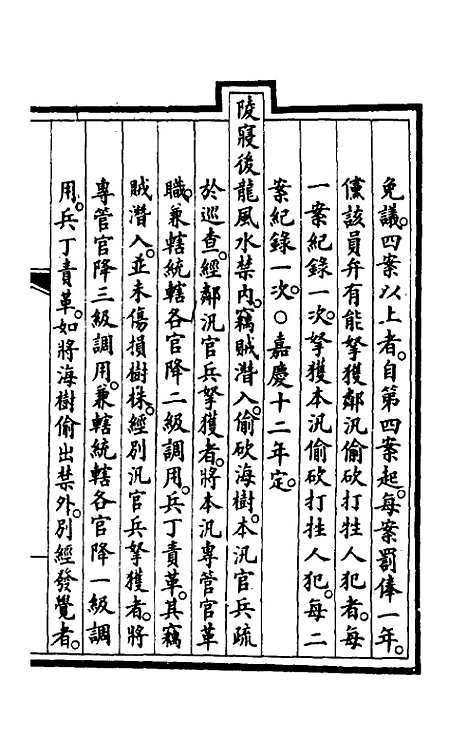 免議。四案以上者。自第四案起。每案罰俸一年。
儻該員弁有能拏獲鄰汛偷砍打牲人犯者。每
一案紀錄一次。拏獲本汛偷砍打牲人犯。每二
案紀錄一次。○嘉慶十二年定。
陵寢後龍風水禁內。竊賊潛入。偷砍海樹。本汛官兵疏
於巡查。經鄰汛官兵拏獲者。將本汛專管官革
職。兼轄統轄各官降二級調用。兵丁責革。其竊
賊潛入。並未傷損樹株。經別汛官兵拏獲者。將
專管官降三級調用。兼轄統轄各官降一級調
用。兵丁責革。如將海樹偷出禁外。別經發覺者。